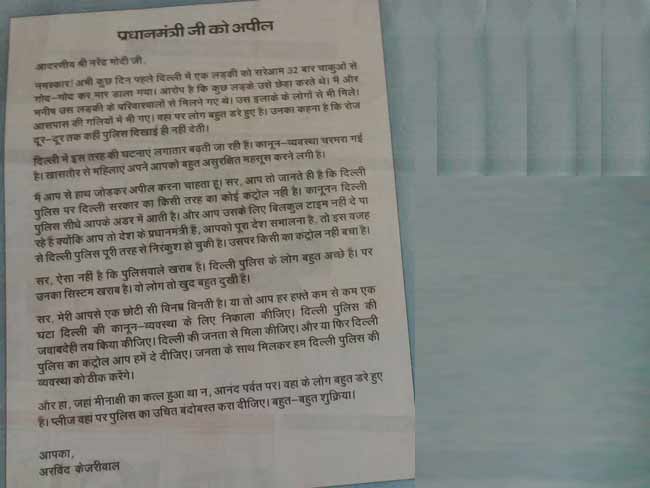 प्रधानमंत्री जी को अपील
आदरणीय श्री नरेंद्र मोदी जी,
नमस्कार! अभी कुछ दिन पहले दिल्ली में एक लड़की को सरेआम 32 बार चाकुओं से
गोद-गोद कर मार डाला गया। आरोप है कि कुछ लड़के उसे छेड़ा करते थे। मैं और
मनीष उस लड़की के परिवारवालों से मिलने गए थे। उस इलाके के लोगों से भी मिले।
आसपास की गलियों में भी गए। वहां पर लोग बहुत डरे हुए है। उनका कहना है कि रोज
दूर-दूर तक कहीं पुलिस दिखाई ही नहीं देती।
दिल्ली में इस तरह की घटनाएं लगातार बढ़ती जा रही है। कानून-व्यवस्था चरमरा गई
है। खासतौर से महिलाएं अपने आपको बहुत असुरक्षित महसूस करने लगी है।
मैं आप से हाथ जोड़कर अपील करना चाहता हूं। सर, आप तो जानते ही है कि दिल्ली
पुलिस पर दिल्ली सरकार का किसी तरह का कोई कंट्रोल नहीं है। कानूनन दिल्ली
पुलिस सीधे आपके अंडर में आती है। और आप उसके लिए बिलकुल टाइम नहीं दे पा
रहे हैं क्योंकि आप तो देश के प्रधानमंत्री है, आपको पूरा देश संभालना है, तो इस वजह
से दिल्ली पुलिस पूरी तरह से निरंकुश हो चुकी है। उसपर किसी का कंट्रोल नहीं बचा है।
सर, ऐसा नहीं है कि पुलिसवाले खराब है। दिल्ली पुलिस के लोग बहुत अच्छे है। पर
उनका सिस्टम खराब है। वो लोग तो खुद बहुत दुखी है।
सर, मेरी आपसे एक छोटी सी विनम्र विनती है। या तो आप हर हफ्ते कम से कम एक
घंटा दिल्ली की कानून-व्यवस्था के लिए निकाला कीजिए। दिल्ली पुलिस की
जवाबदेही तय किया कीजिए। दिल्ली की जनता से मिला कीजिए। और या फिर दिल्ली
पुलिस का कंट्रोल आप हमें दे दीजिए। जनता के साथ मिलकर हम दिल्ली पुलिस की
व्यवस्था को ठीक करेंगे।
और हां, जहां मीनाक्षी का कत्ल हुआ था न, आनंद पर्वत पर। वहां के लोग बहुत डरे हुए
है। प्लीज वहां पर पुलिस का उचित बंदोबस्त करा दीजिए। बहुत-बहुत शुक्रिया।
आपका,
अरविंद केजरीवाल